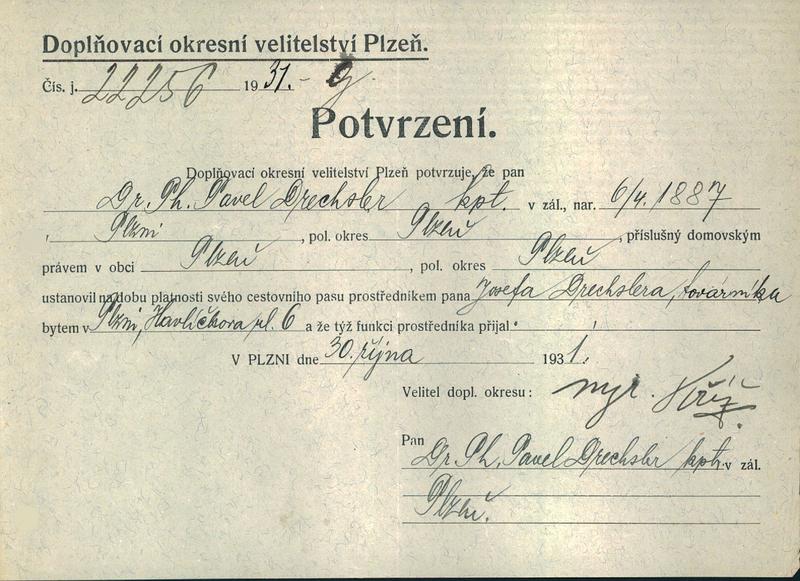 Doplňovací okresní velitelství Plzeň.
Čís. j. 22256 1931.- g.
Potvrzení.
Doplňovací okresní velitelství Plzeň potvrzuje, že pan
Dr. Ph. Pavel Drechsler kpt. v zál., nar. 6/4. 1887
, Plzni , pol. okres Plzeň , příslušný domovským
právem v obci Plzeň , pol. okres Plzeň
ustanovil na dobu platnosti svého cestovního pasu prostředníkem pana Josefa Drechslera, továrníka
bytem v Plzni, Havlíčkova pl. 6 a že týž funkci prostředníka přijal.
V PLZNI dne 30. října 1931.
Velitel dopl. okresu: mjr. Kříž
Pan
Dr. Ph. Pavel Drechsler kpt. v zál.
Plzeň.